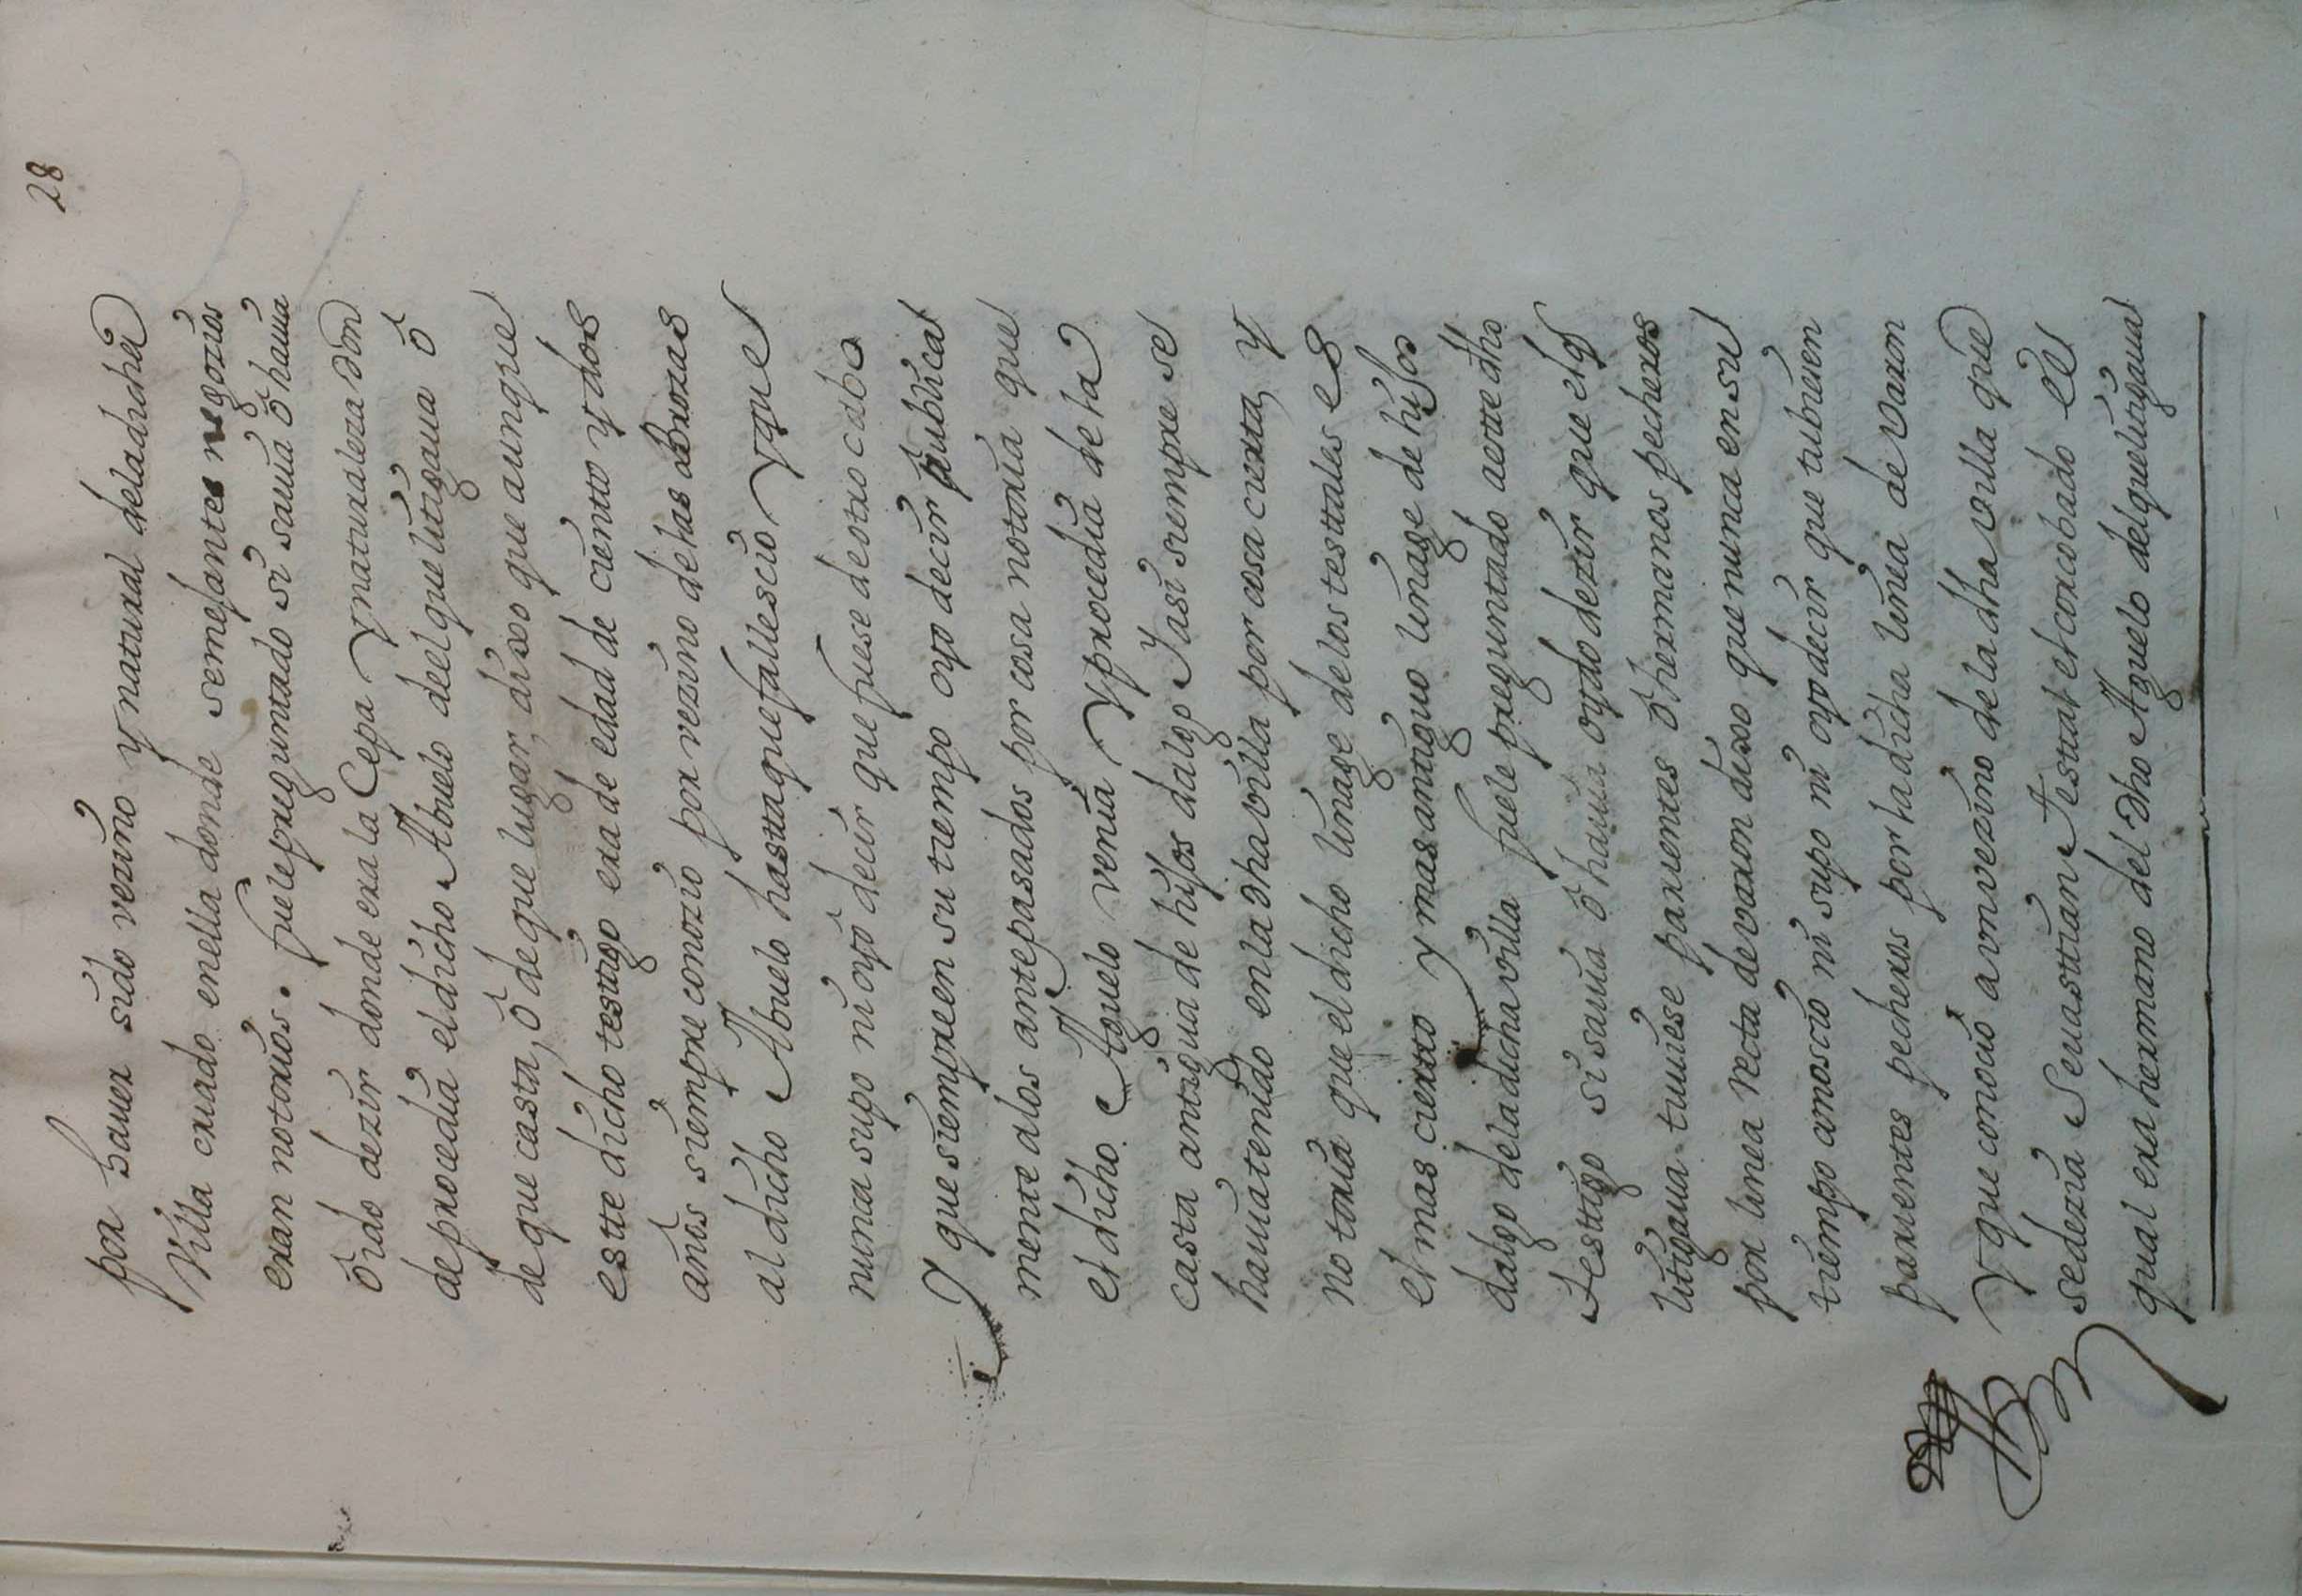 28
por hauer sido vezino y natural deladicha
Villa criado enella donde semejantes negozios
eran notorios. fuele preguntado si sauia ô hauia
ôido dezir donde era la Cepa Y naturaleza don
de procedia el dicho Abuelo deel que litigaua ô
de que casta, ô de que lugar, dixo que aunque
estte dicho testtigo era de edad de cientto y dos
años siempre conozio por vezino de las Brozas
al dicho Abuelo hastta que fallescio Y que
nunca supo ni oyo decir que fuese de otro cabo
Y que siempre en su tiempo oyo decir publica
mente a los antepasados por cosa notoria que
el dicho Aguelo venia Y procedia de la
casta antigua de hijos dalgo Y asi siempre se
hauia tenido en la dha villa por cosa cierta, y
notoria que el dicho linage de los testtales es
el mas cierto y mas antiguo linage de hijos
dalgo de la dicha villa fuele preguntado aestte dho
testtigo si sauia ô hauia oydo dezir que el q̃
litigaua tuuiese parientes ô hermanos pecheros
por linea recta de varon dixo que nunca en su
tiempo conoscio ni supo ni oyo decir que tubiesen
parientes pecheros por la dicha linea de varon
Y que conocio a un vezino de la dha villa que
se dezia Seuasttian Testtal el corcobado el
qual era hermano del dho Aguelo del que litigaua